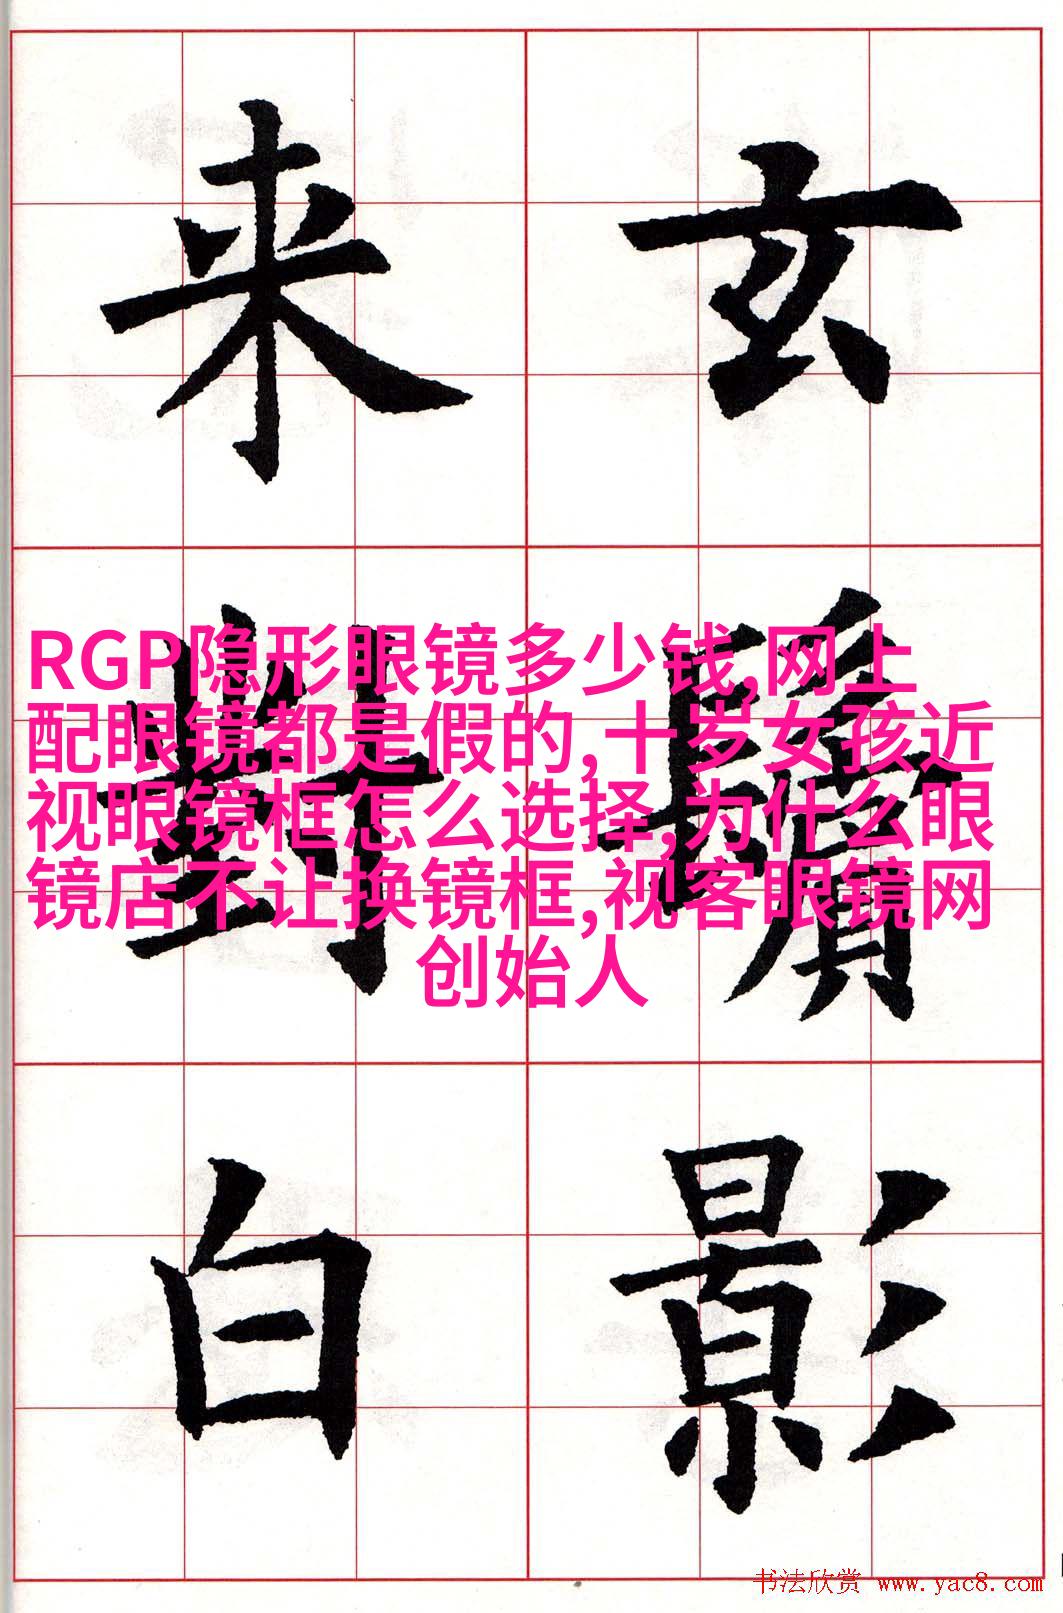 玄鬢影
来對白
RGP隐形眼镜多少钱,网上
配眼镜都是假的,十岁女孩近
视眼镜框怎么选择,为什么眼
镜店不让换镜框,视客眼镜网
创始人
书法欣赏 www.yac8.com